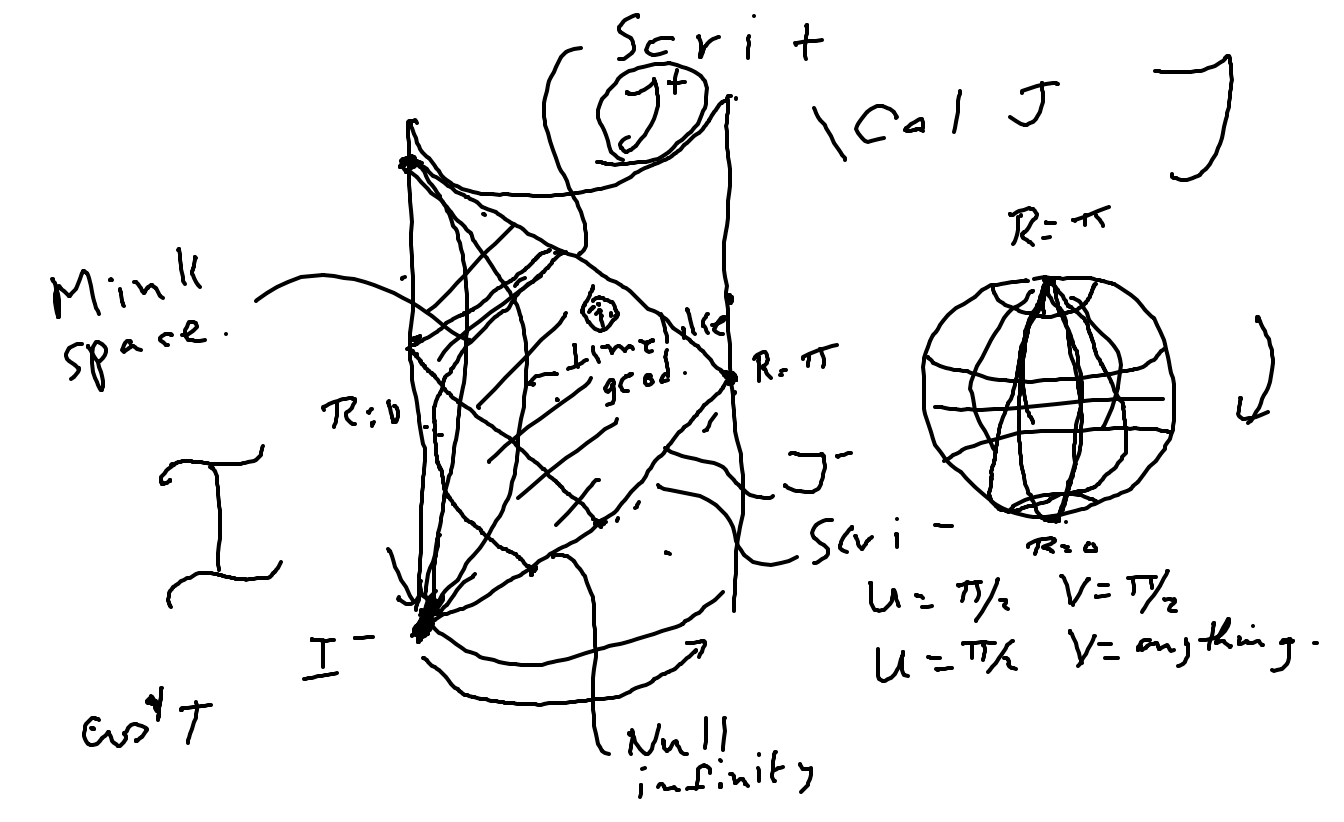 Scri +
J+
\Cal J J
R=π
Mink
space.
time like
geod.
R=π
R=0
I
J-
Scri -
R=0
U=π/2 V=π/2
U=π/2 V=anything.
I-
Null
infinity